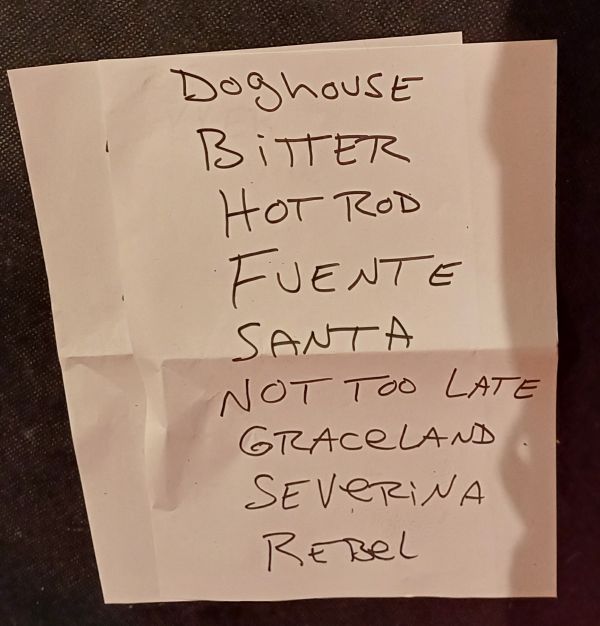 DogHOUSE
BiTTER
HOT ROD
FUENTE
SANTA
NOT TOO LATE
GRACeLAND
SEVeRiNA
REBeL